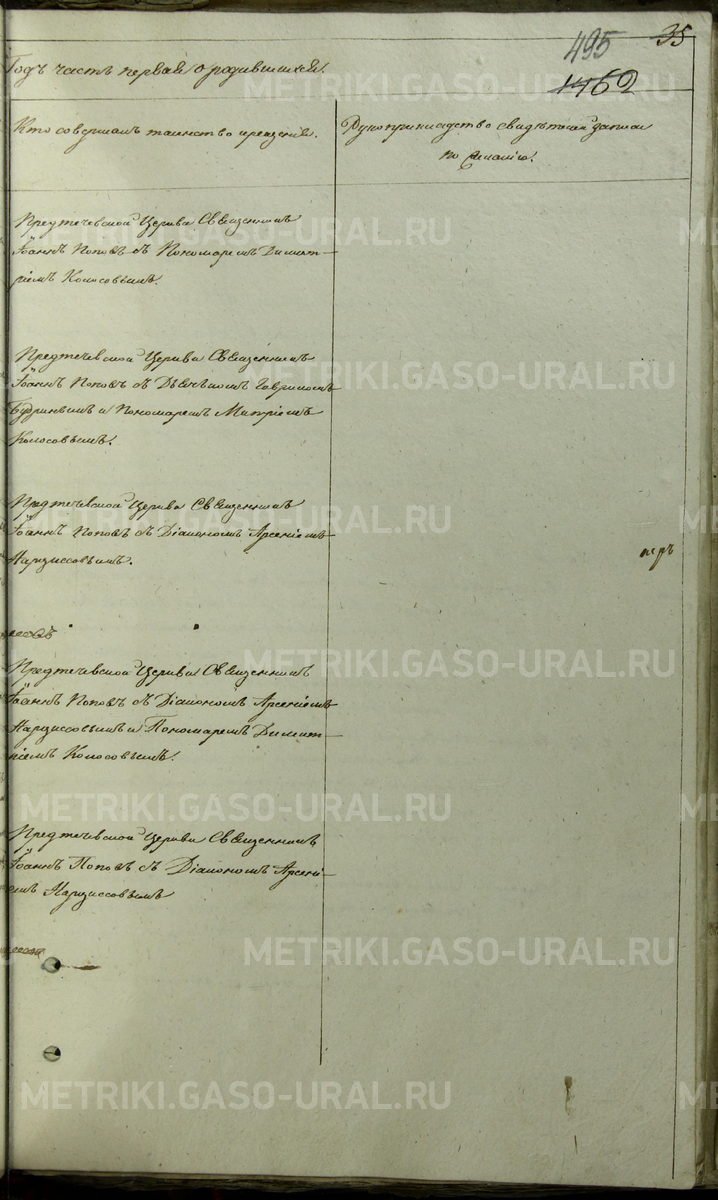 35
495
1462
Годъ часть первая о родившихся.
Кто совершалъ таинство крещенія.
Рукоприкладство свидѣтелей записи
по желанію.
Предтечевской Церкви Священникъ
Іоаннъ Поповъ съ Пономаремъ Димит-
ріемъ Колосовымъ.
Предтечевской Церкви Священникъ
Іоаннъ Поповъ съ Дьячкомъ Гавриломъ
и Пономаремъ Митріемъ
Колосовымъ.
Предтечевской Церкви Священникъ
Іоаннъ Поповъ съ Діакономъ Арсеніемъ
Нарциссовымъ.
Предтечевской Церкви Священникъ
Іоаннъ Поповъ съ Діакономъ Арсеніемъ
Нарциссовымъ и Пономаремъ Димит-
ріемъ Колосовымъ.
Предтечевской Церкви Священникъ
Іоаннъ Поповъ съ Діакономъ Арсені-
емъ Нарциссовымъ
METRIKI.GASO-URAL.RU
METRIKI.GASO-URAL.RU
METRIKI.GASO-URAL.RU
METRIKI.GASO-URAL.RU
METRIKI.GASO-URAL.RU
METRIKI.GASO-URAL.RU
METRIKI.GASO-URAL.RU